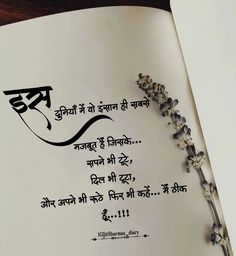 इस
दुनियाँ में वो इंसान ही सबसे
मजबूत हैं जिसके...
सपने भी टूटे,
दिल भी टूटा,
और अपने भी रूठे फिर भी कहें... मैं ठीक
हूँ..!!!